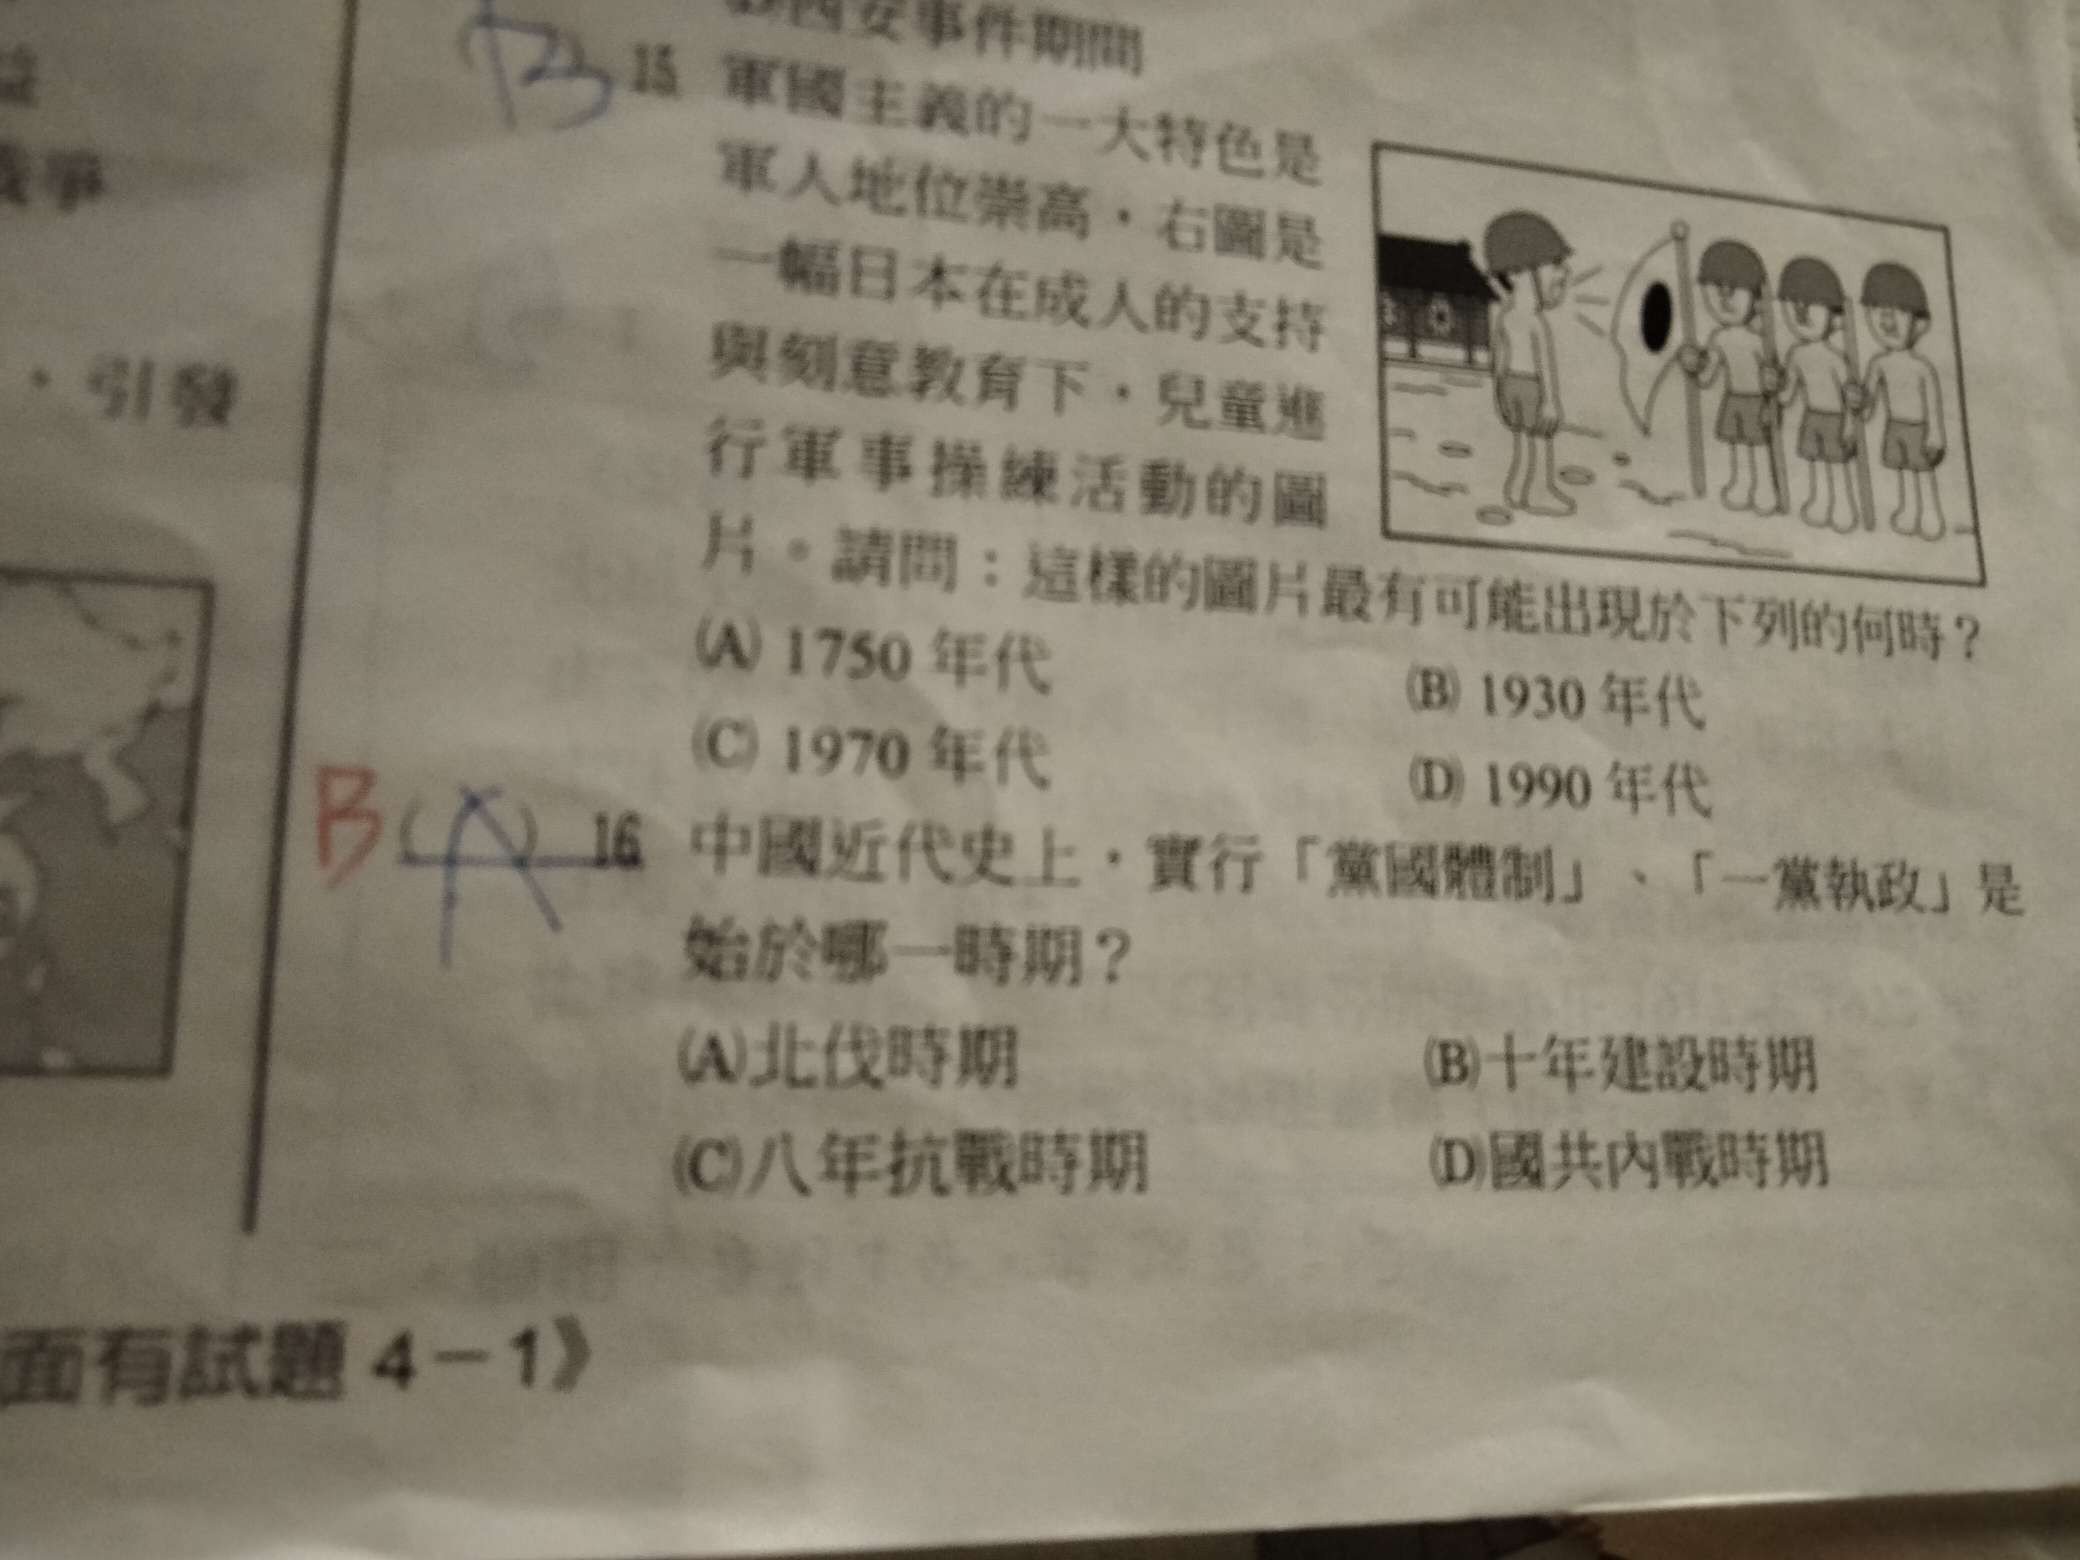 益
戰爭
，引發
西安事件期間
B 15 軍國主義的一大特色是
軍人地位崇高，右圖是
一幅日本在成人的支持
與刻意教育下，兒童進
行軍事操練活動的圖
片。請問：這樣的圖片最有可能出現於下列的何時？
(A) 1750 年代 (B) 1930 年代
(C) 1970 年代 (D) 1990 年代
B (A) 16 中國近代史上，實行「黨國體制」、「一黨執政」是
始於哪一時期？
(A)北伐時期 (B)十年建設時期
(C)八年抗戰時期 (D)國共內戰時期
面有試題 4－1》